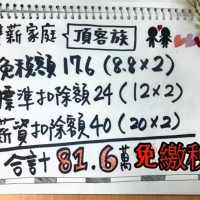 雙薪家庭{頂客族
免稅額17.6(8.8×2)
標準扣除額24(12×2)
薪資扣除額40(20×2)
合計81.6萬免繳稅